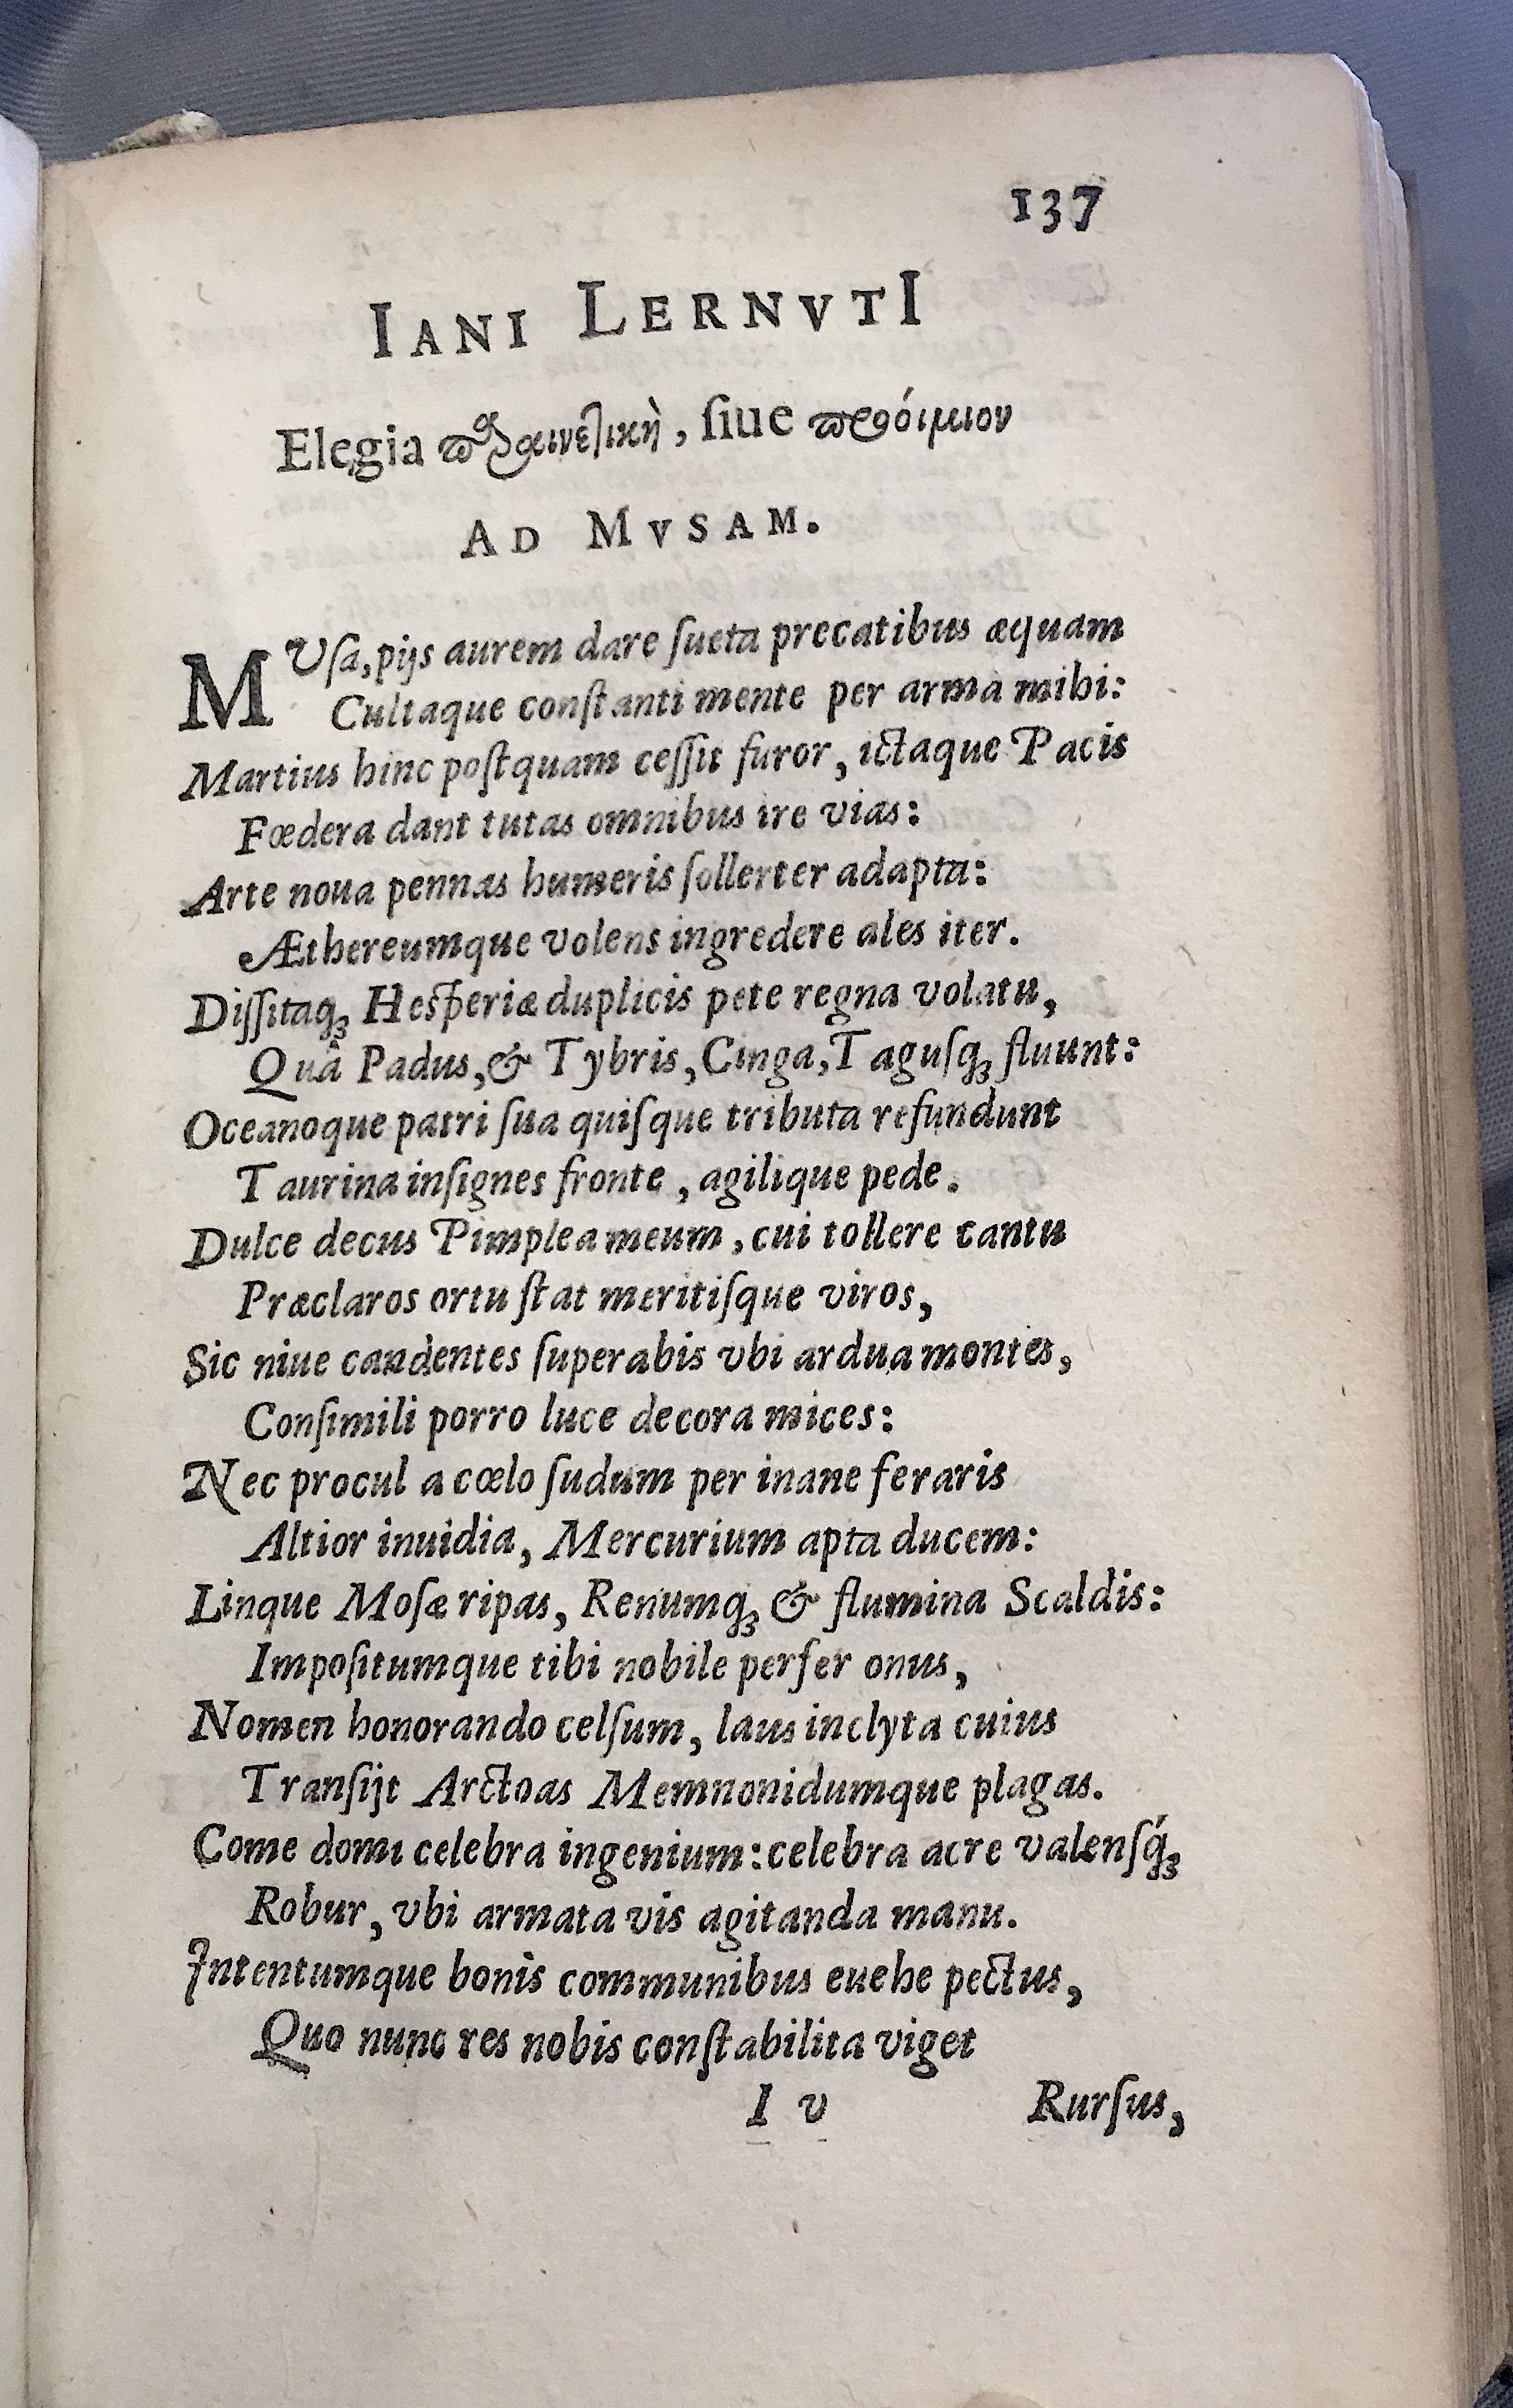 137
IANI LERNVTI
Elegia παραινετικὴ, ſiue προόιμιον
AD MVSAM.
MVſa, pijs aurem dare ſueta precatibus æquam
Cultaque conſtanti mente per arma mihi:
Martius hinc poſtquam ceſſit furor, ictaque Pacis
Fœdera dant tutas omnibus ire vias:
Arte noua pennas humeris ſollerter adapta:
Æthereumque volens ingredere ales iter.
Diſſitaq́ꝫ Heſperiæ duplicis pete regna volatu,
Quâ Padus, & Tybris, Cinga, Taguſqꝫ fluunt:
Oceanoque patri ſua quiſque tributa refundunt
Taurina inſignes fronte, agilique pede.
Dulce decus Pimplea meum, cui tollere cantu
Præclaros ortu ſtat meritiſque viros,
Sic niue candentes ſuperabis vbi ardua montes,
Conſimili porro luce decora mices:
Nec procul a cœlo ſudum per inane feraris
Altior inuidia, Mercurium apta ducem:
Linque Moſæ ripas, Renumqꝫ & flumina Scaldis:
Impoſitumque tibi nobile perfer onus,
Nomen honorando celſum, laus inclyta cuius
Tranſijt Arctoas Memnonidumque plagas.
Come domi celebra ingenium: celebra acre valenſq́ꝫ
Robur, vbi armata vis agitanda manu.
Intentumque bonis communibus euehe pectus,
Quo nunc res nobis conſtabilita viget
I v
Rurſus,